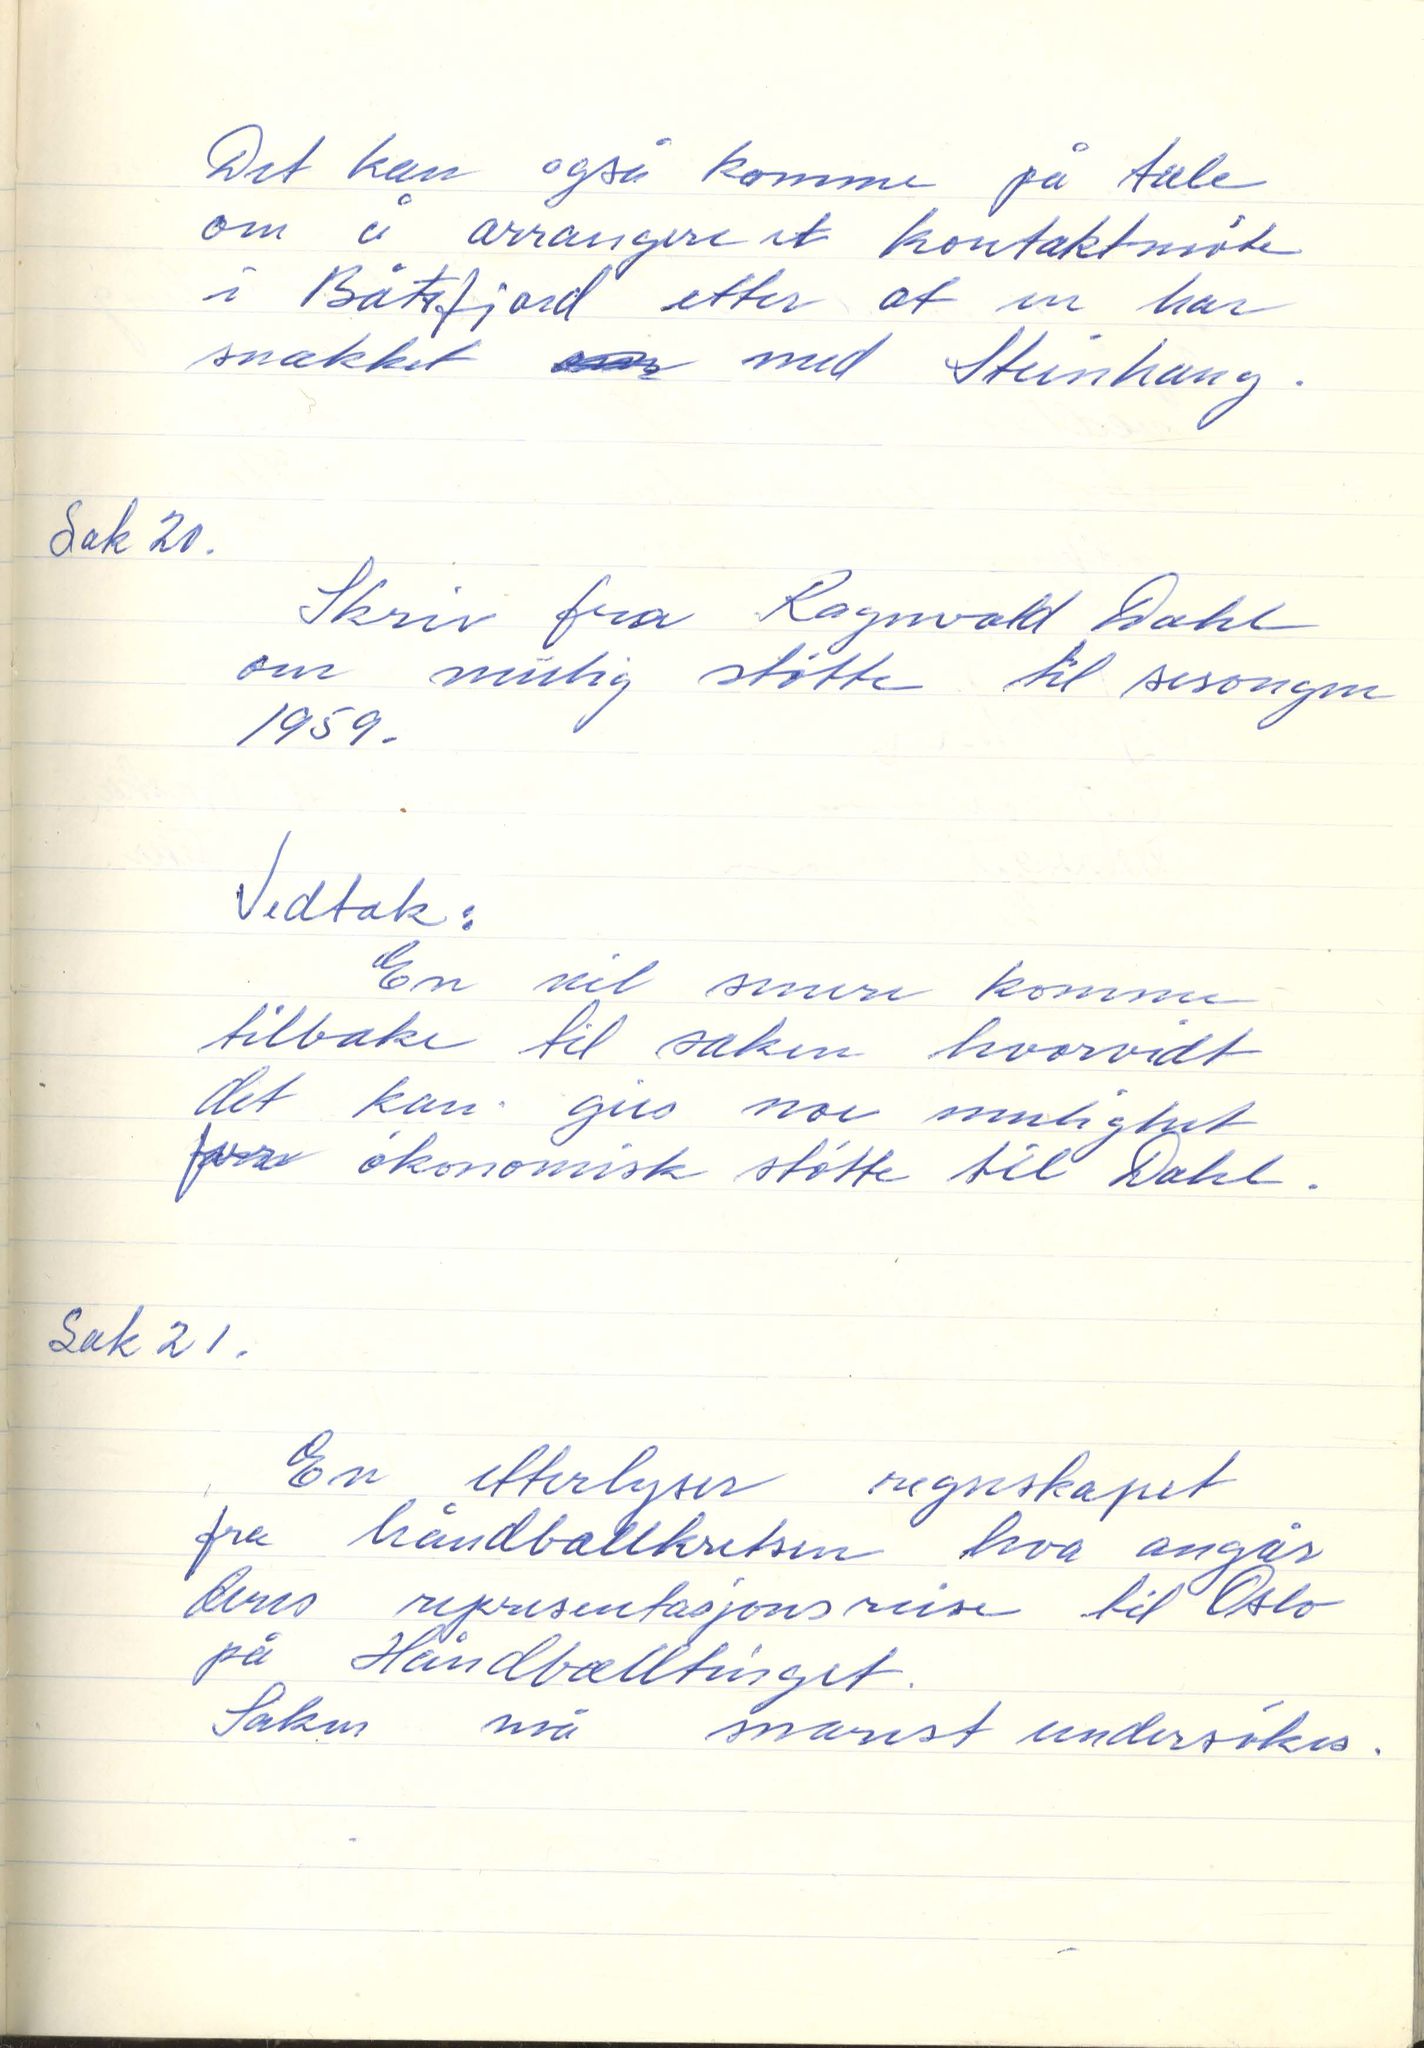 Det kan også komme på tale
om å arrangere et kontaktmöte
i Båtsfjord etter at en har
snakket med Steinhaug.
Sak 20.
Skriv fra Ragnvald Dahl
om mulig stötte til sesongen
1959.
Vedtak:
En vil senere komme
tilbake til saken hvorvidt
det kan gis noe mulighet
ökonomisk stötte til Dahl.
Sak 21.
En etterlyser regnskapet
fra håndballkretsen hva angår
deres representasjonsreise til Oslo
på Håndballtinget.
Saken må snarest undersökes.